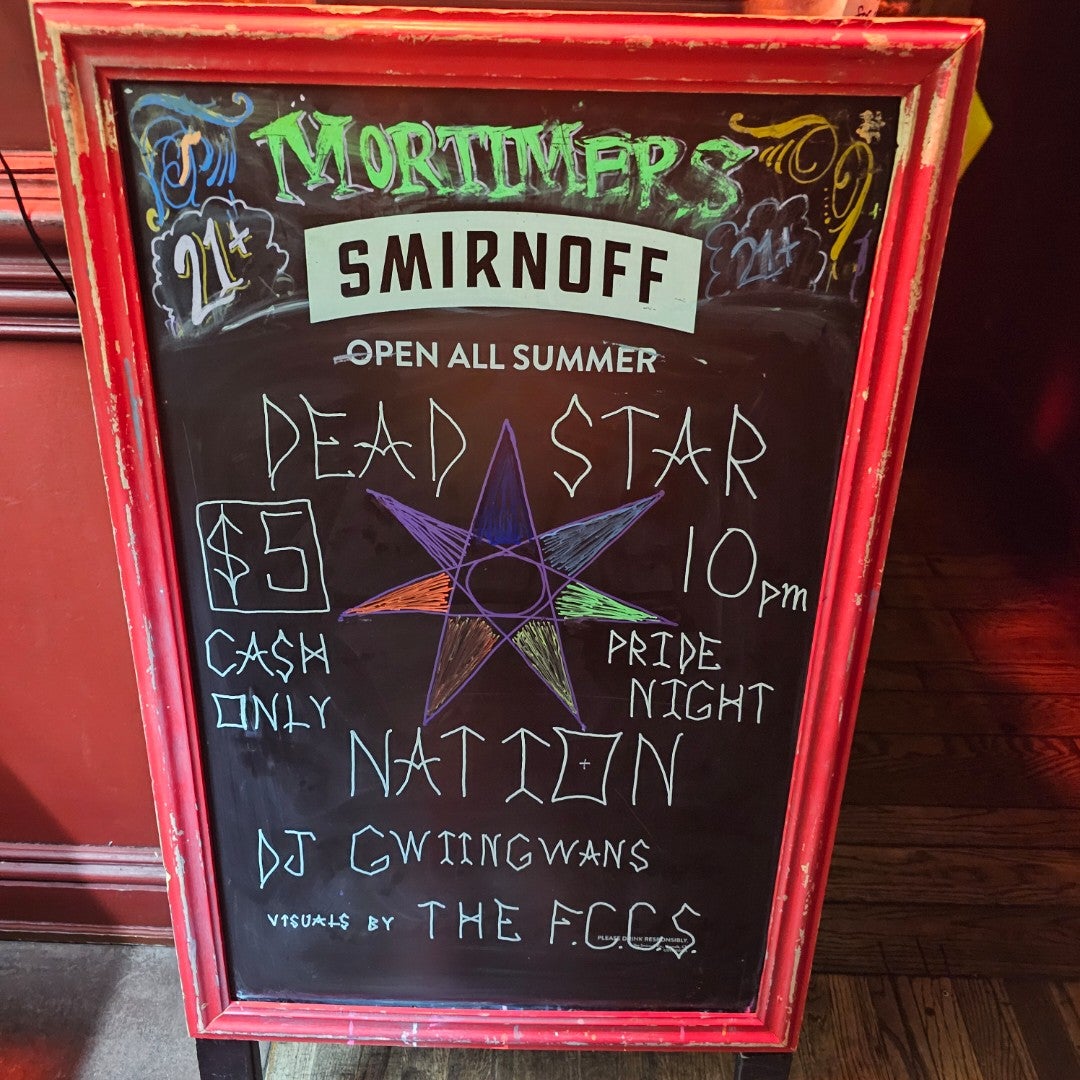 MORTIMERS
21+
21+
SMIRNOFF
OPEN ALL SUMMER
DEAD STAR
$5
10pm
CASH
ONLY
PRIDE
NIGHT
NATION
DJ GWIINGWANS
VISUALS BY THE F.C.C.S.
PLEASE DRINK RESPONSIBLY.